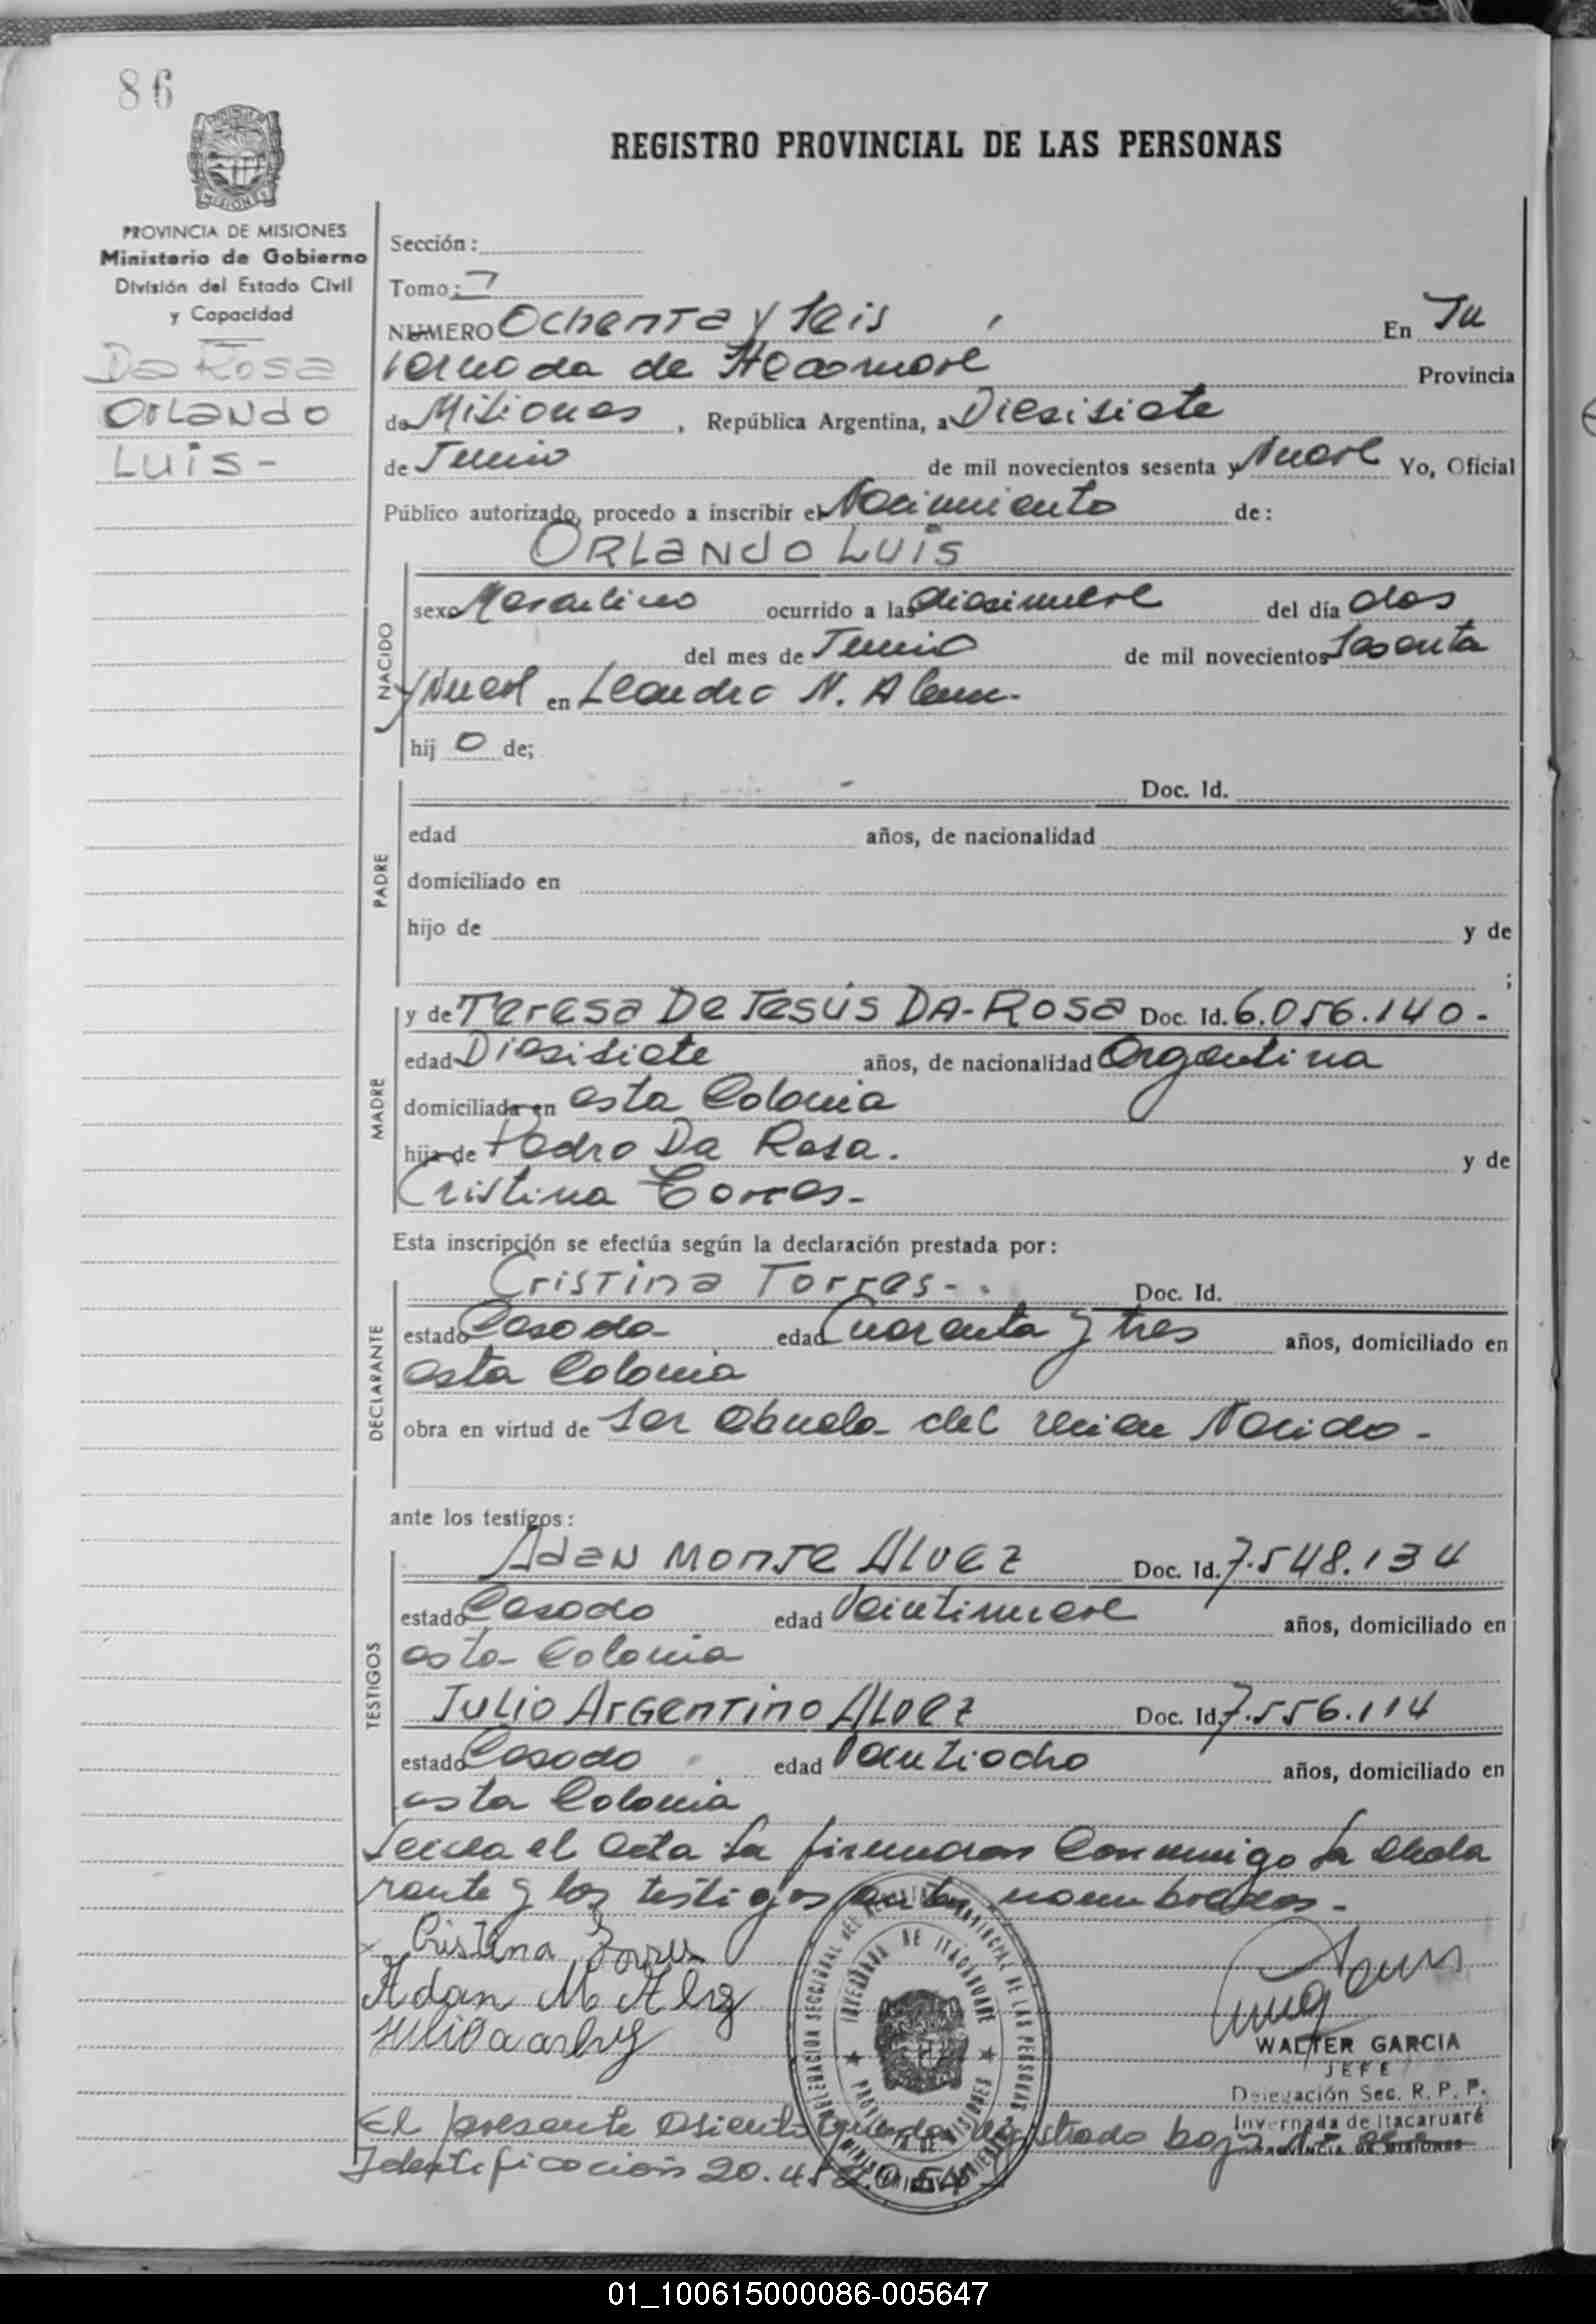 86
REGISTRO PROVINCIAL DE LAS PERSONAS
PROVINCIA DE MISIONES
Ministerio de Gobierno
División del Estado Civil
y Capacidad
Da Rosa
Orlando
Luis-
Sección:
Tomo: 7
NUMERO Ochenta y Seis En In
vernada de Itacaruaré Provincia
de Misiones, República Argentina, a Diesisiete
de Junio de mil novecientos sesenta y Nueve Yo, Oficial
Público autorizado, procedo a inscribir el Nacimiento de:
ORLANDO LUIS
NACIDO
sexo Masculino ocurrido a las diesinueve del día dos
del mes de Junio de mil novecientos Sesenta
y Nueve en Leandro N. Alem-
hij o de;
PADRE
Doc. Id.
edad años, de nacionalidad
domiciliado en
hijo de y de
;
MADRE
y de Teresa De Jesús DA-ROSA Doc. Id. 6.056.140-
edad Diesisiete años, de nacionalidad Argentina
domiciliada en esta Colonia
hija de Pedro Da Rosa. y de
Cristina Torres-
Esta inscripción se efectúa según la declaración prestada por:
DECLARANTE
Cristina Torres- Doc. Id.
estado Casada edad Cuarenta y tres años, domiciliado en
esta Colonia
obra en virtud de Ser Abuela del recien Nacido-
ante los testigos:
TESTIGOS
Adan Monte Alvez Doc. Id. 7.548.134
estado Casado edad Veintinueve años, domiciliado en
esta Colonia
Julio Argentino Alvez Doc. Id. 7.556.114
estado Casado edad Veintiocho años, domiciliado en
esta Colonia
el Acta la firmaron Conmigo la decla
rante y los testigos nombrados-
x Cristina Torres
Adan M. Alvez
Julio a
WALTER GARCIA
JEFE
Delegación Sec. R. P. P.
Invernada de Itacaruaré
PROVINCIA DE MISIONES
INVERNADA DE ITACARUARE
PROVINCIA DE MISIONES
El presente Asiento queda registrado bajo
Identificación 20.4
01_100615000086-005647